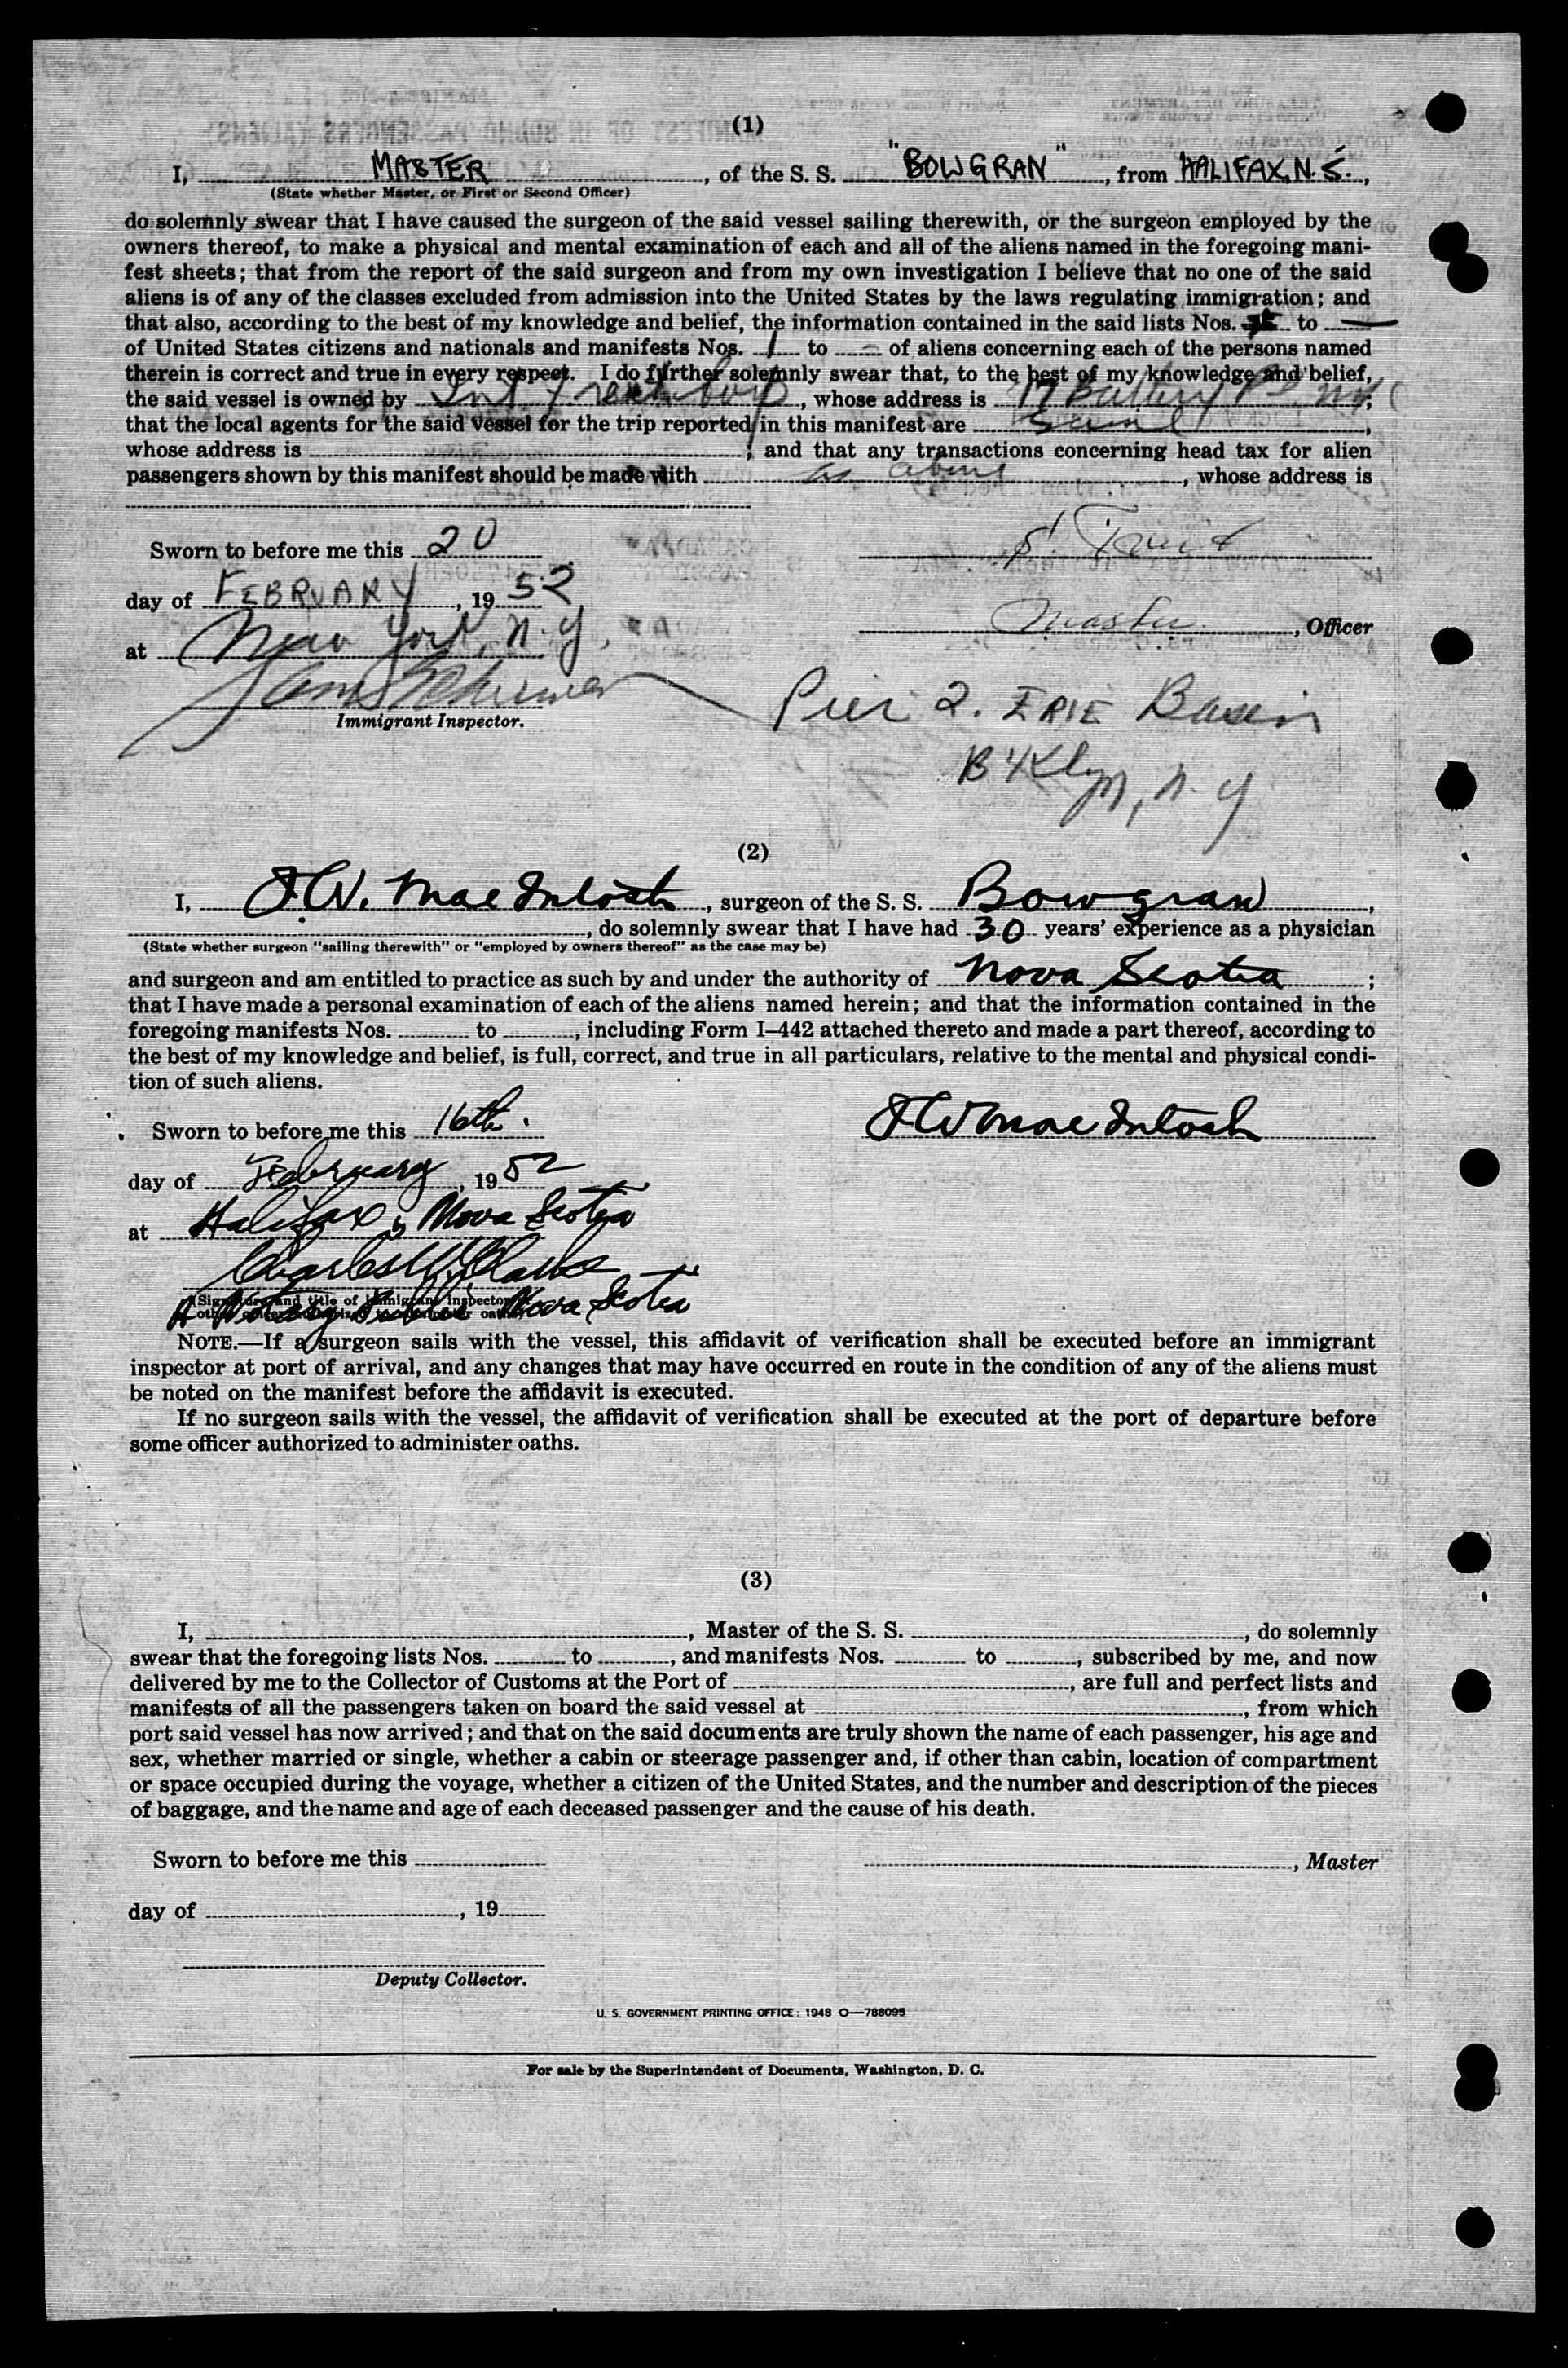 (1)
I, MASTER, of the S. S. "BOWGRAN", from HALIFAX, N. S.,
(State whether Master, or First or Second Officer)
do solemnly swear that I have caused the surgeon of the said vessel sailing therewith, or the surgeon employed by the
owners thereof, to make a physical and mental examination of each and all of the aliens named in the foregoing mani-
fest sheets; that from the report of the said surgeon and from my own investigation I believe that no one of the said
aliens is of any of the classes excluded from admission into the United States by the laws regulating immigration; and
that also, according to the best of my knowledge and belief, the information contained in the said lists Nos. to —
of United States citizens and nationals and manifests Nos. 1 to - of aliens concerning each of the persons named
therein is correct and true in every respect. I do further solemnly swear that, to the best of my knowledge and belief,
the said vessel is owned by Int, whose address is 17 Battery Pl NYC;
that the local agents for the said vessel for the trip reported in this manifest are Same,
whose address is ; and that any transactions concerning head tax for alien
passengers shown by this manifest should be made with as above, whose address is
Sworn to before me this 20
day of FEBRUARY, 1952
Master, Officer
at New York, N.Y.
Immigrant Inspector.
Pier 2. ERIE Basin
B'Klyn, N.Y
(2)
I, J.W. MacIntosh, surgeon of the S. S. Bowgran,
, do solemnly swear that I have had 30 years' experience as a physician
(State whether surgeon "sailing therewith" or "employed by owners thereof" as the case may be)
and surgeon and am entitled to practice as such by and under the authority of Nova Scotia;
that I have made a personal examination of each of the aliens named herein; and that the information contained in the
foregoing manifests Nos. to , including Form I-442 attached thereto and made a part thereof, according to
the best of my knowledge and belief, is full, correct, and true in all particulars, relative to the mental and physical condi-
tion of such aliens.
Sworn to before me this 16th.
JW MacIntosh
day of February, 1952
at Halifax, Nova Scotia
Charles W
(Signature and title of immigrant inspector or
other officer authorized to administer oaths)
A Notary Public Nova Scotia
NOTE.—If a surgeon sails with the vessel, this affidavit of verification shall be executed before an immigrant
inspector at port of arrival, and any changes that may have occurred en route in the condition of any of the aliens must
be noted on the manifest before the affidavit is executed.
If no surgeon sails with the vessel, the affidavit of verification shall be executed at the port of departure before
some officer authorized to administer oaths.
(3)
I, , Master of the S. S. , do solemnly
swear that the foregoing lists Nos. to , and manifests Nos. to , subscribed by me, and now
delivered by me to the Collector of Customs at the Port of , are full and perfect lists and
manifests of all the passengers taken on board the said vessel at , from which
port said vessel has now arrived; and that on the said documents are truly shown the name of each passenger, his age and
sex, whether married or single, whether a cabin or steerage passenger and, if other than cabin, location of compartment
or space occupied during the voyage, whether a citizen of the United States, and the number and description of the pieces
of baggage, and the name and age of each deceased passenger and the cause of his death.
Sworn to before me this
, Master
day of , 19
Deputy Collector.
U. S. GOVERNMENT PRINTING OFFICE: 1948 O—788095
For sale by the Superintendent of Documents, Washington, D. C.